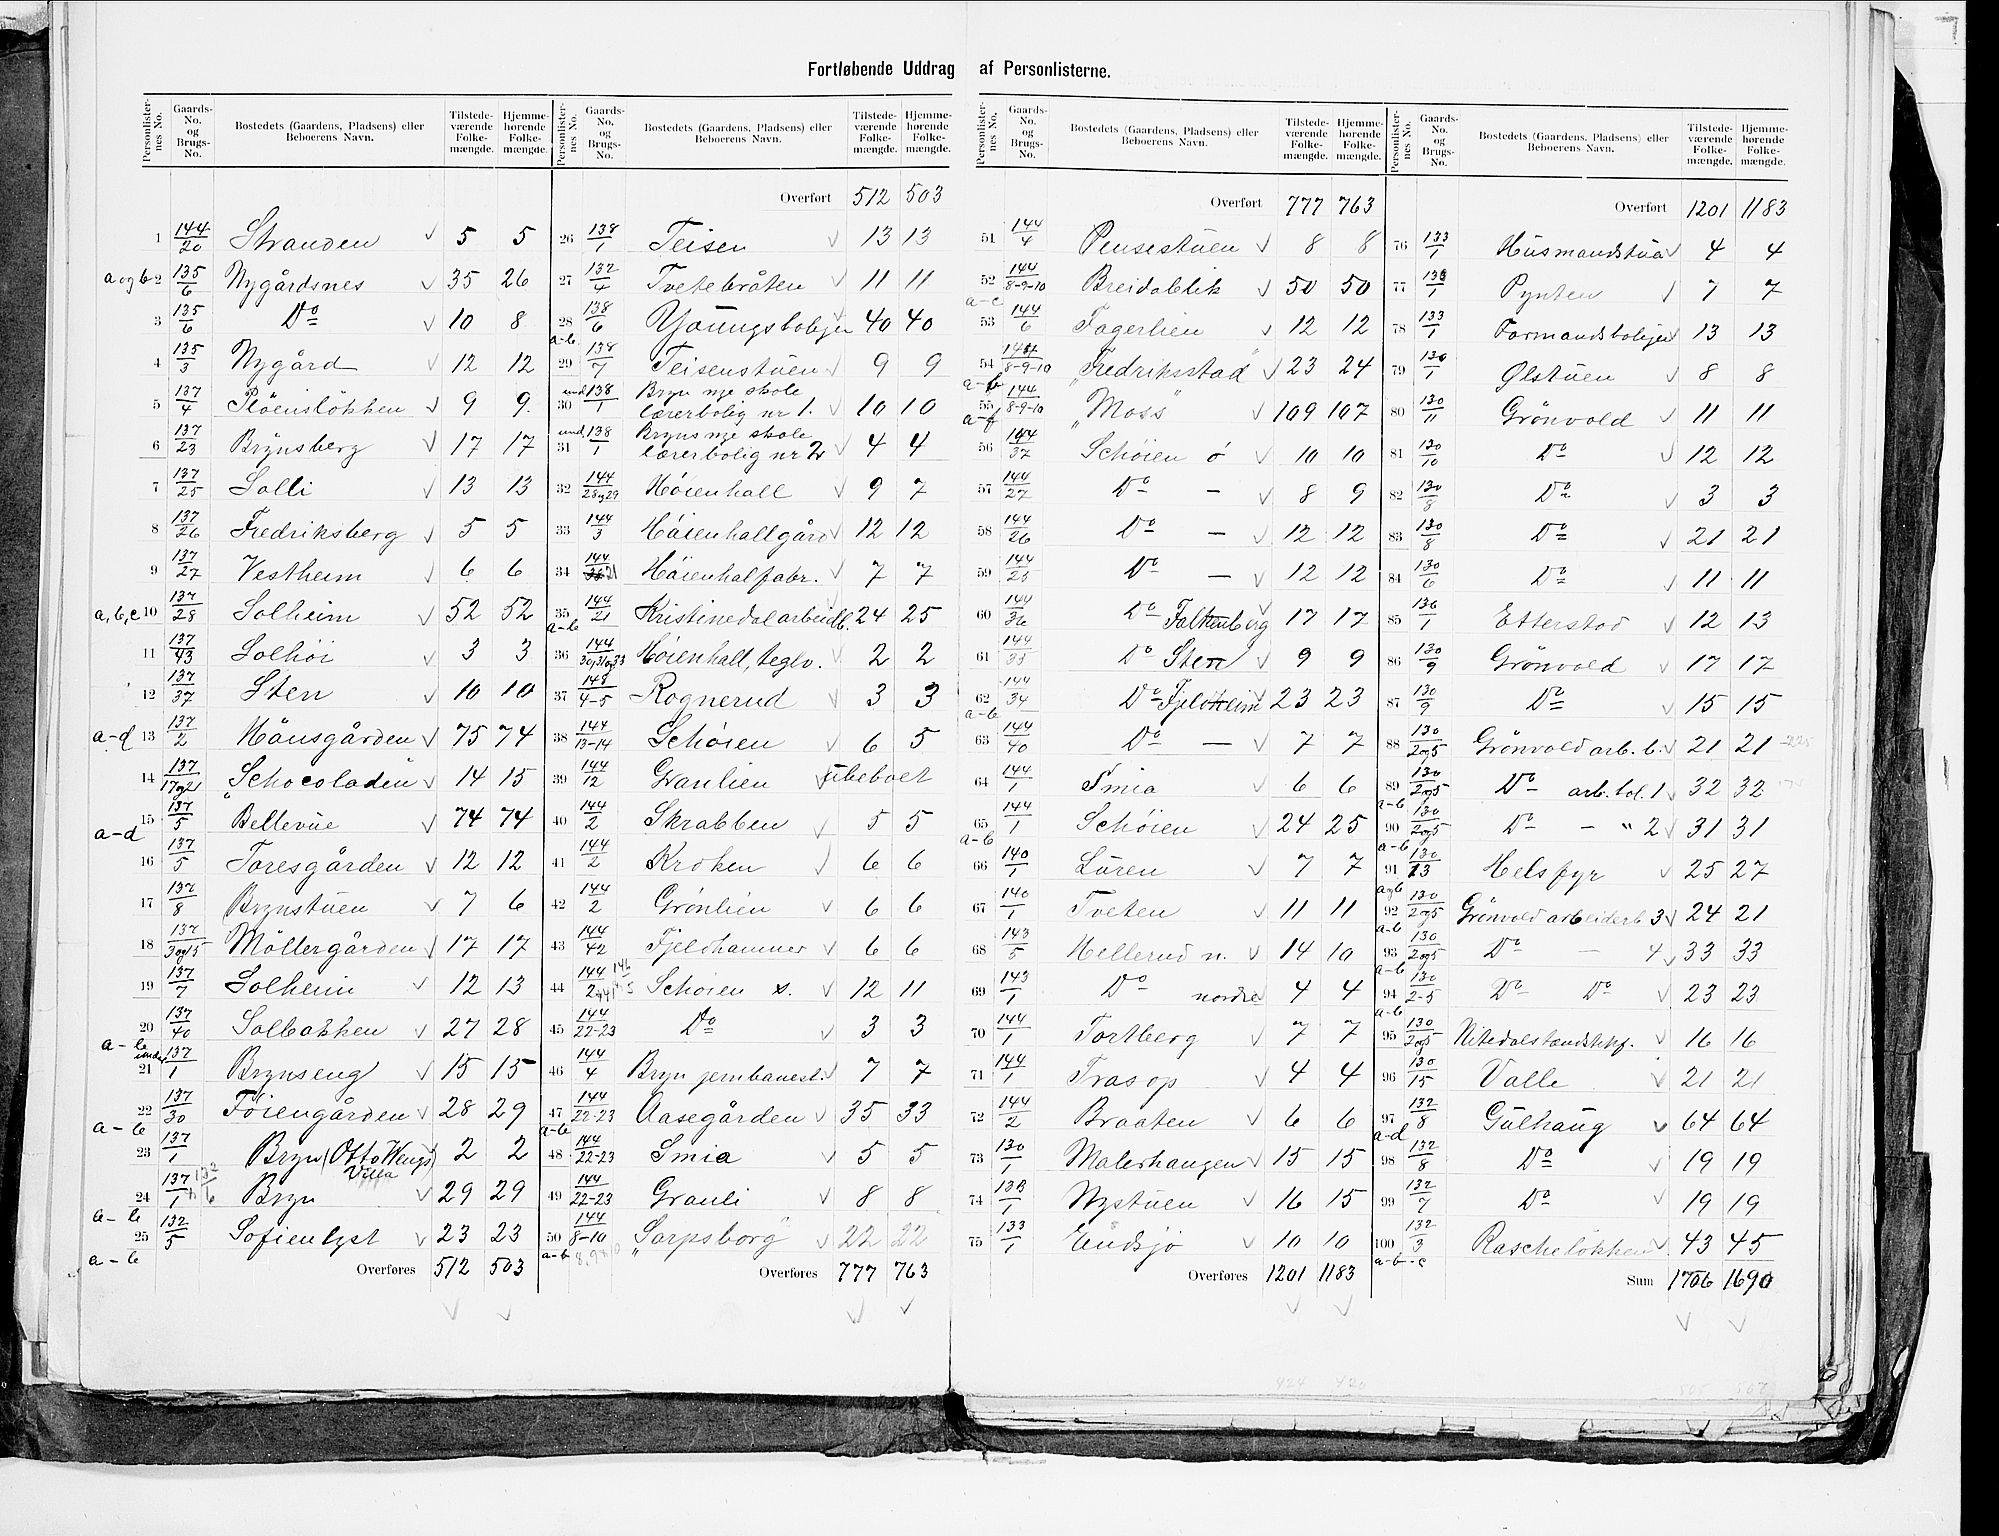 Fortløbende Uddrag af Personlisterne.
Personlister-nes No. Gaards-No. og Brugs-No. Bostedets (Gaardens, Pladsens) eller Beboerens Navn. Tilstede-værende Folke-mængde. Hjemme-hørende Folke-mængde.
1 144/20 Stranden 5 5
a og b 2 135/6 Nygårdsnes 35 26
3 135/6 Do 10 8
4 135/3 Nygård 12 12
5 137/4 Plöensløkken 9 9
6 137/23 Brynsberg 17 17
7 137/25 Solli 13 13
8 137/26 Fredriksberg 5 5
9 137/27 Vestheim 6 6
a, b, c 10 137/28 Solheim 52 52
11 137/43 Solhöi 3 3
12 137/37 Sten 10 10
a-d 13 137/2 Hånsgården 75 74
14 137/17og21 "Schocoladen" 14 15
15 137/5 Bellevue 74 74
a-d
16 137/5 Toresgården 12 12
17 137/8 Brynstuen 7 6
18 137/3og15 Möllergården 17 17
19 137/7 Solheim 12 13
20 137/40 Solbakken 27 28
a-b
21 under 137/1 Brynseng 15 15
22 137/30 Föiengården 28 29
a-b
23 137/1 Bryn (Otto Wengs Villa) 2 2
24 137/1 132/6 Bryn 29 29
a-b
25 132/5 Sofienlyst 23 23
a-b
Overføres 512 503
Personlister-nes No. Gaards-No. og Brugs-No. Bostedets (Gaardens, Pladsens) eller Beboerens Navn. Tilstede-værende Folke-mængde. Hjemme-hørende Folke-mængde.
Overført 512 503
26 138/1 Teisen 13 13
27 132/4 Tvetebråten 11 11
28 138/6 Youngsbolejen 40 40
a-b
29 138/7 Teisenstuen 9 9
30 und. 138/1 Bryn nye skole lærerbolig nr 1. 10 10
31 und. 138/1 Bryns nye skole lærerbolig nr 2 4 4
32 144/28og29 Høienhall 9 7
33 144/3 Høienhallgård 12 12
34 144/21 Høienhalfabr. 7 7
35 144/21 Kristinedal arbeidb. 24 25
a-b
36 144/30og31og33 Høienhall, teglv. 2 2
37 148/4-5 Rognerud 3 3
38 144/13-14 Schøien 6 5
39 144/12 Granlien ubeboet
40 144/2 Skrabben 5 5
41 144/2 Kroken 6 6
42 144/2 Grönlien 6 6
43 144/42 Fjeldhammer 6 6
44 144/2 Schøien s. 12 11
45 144/22-23 Do 3 3
46 144/4 Bryn jernbanest. 7 7
47 144/22-23 Aasegården 35 33
a-b
48 144/22-23 Smia 5 5
49 144/22-23 Granli 8 8
50 144/8-10 "Sarpsborg" 22 22
a-b 8, 9 & 10
Overføres 777 763
Personlister-nes No. Gaards-No. og Brugs-No. Bostedets (Gaardens, Pladsens) eller Beboerens Navn. Tilstede-værende Folke-mængde. Hjemme-hørende Folke-mængde.
Overført 777 763
51 144/4 Pensestuen 8 8
52 144/8-9-10 Breidablik 50 50
a-c
53 144/6 Fagerlien 12 12
54 144/8-9-10 "Fredriksstad" 23 24
a-b
55 144/8-9-10 "Moss" 109 107
a-f
56 144/37 Schøien ö 10 10
57 144/27 Do - 8 9
58 144/26 Do - 12 12
59 144/25 Do - 12 12
60 144/36 Do Falkenberg 17 17
61 144/35 Do Sten 9 9
62 144/34 Do Fjeldheim 23 23
a-b
63 144/40 Do - 7 7
64 144/1 Smia 6 6
65 144/1 Schøien 24 25
a-b
66 140/1 Lüren 7 7
67 140/1 Tveten 11 11
68 143/5 Hellerud n. 14 10
69 143/1 Do nordre 4 4
70 144/1 Tortberg 7 7
71 144/1 Trasop 4 4
72 144/2 Braaten 6 6
73 130/1 Malerhaugen 15 15
74 133/1 Nystuen 16 15
75 133/1 Endsjø 10 10
Overføres 1201 1183
424 420
Personlister-nes No. Gaards-No. og Brugs-No. Bostedets (Gaardens, Pladsens) eller Beboerens Navn. Tilstede-værende Folke-mængde. Hjemme-hørende Folke-mængde.
Overført 1201 1183
76 133/1 Husmandstua 4 4
77 133/1 Pynten 7 7
78 133/1 Formandsbolejen 13 13
79 130/1 Ølstuen 8 8
80 130/11 Grönvold 11 11
81 130/10 Do 12 12
82 130/8 Do 3 3
83 130/8 Do 21 21
84 130/6 Do 11 11
85 130/1 Etterstad 12 13
86 130/9 Grönvold 17 17
87 130/9 Do 15 15
88 130/2og5 Grönvold arb. b. 21 21
89 130/2og5 Do arb. bol. 1 32 32
a-b
90 130/2og5 Do - " 2 31 31
a-b
91 130/13 Helsfyr 25 27
a og b
92 130/2og5 Grönvold arbeiderb 3 24 21
a-b
93 130/2og5 Do - 4 33 33
a-b
94 130/2-5 Do Do 23 23
a-b
95 130/2og5 Nitedalstændstkf. 16 16
96 130/15 Valle 21 21
97 132/8 Gulhaug 64 64
a-d
98 132/8 Do 19 19
99 132/7 Do 19 19
100 132/3 Rascheløkken 43 45
a-b-c
Sum 1706 1690
505 507